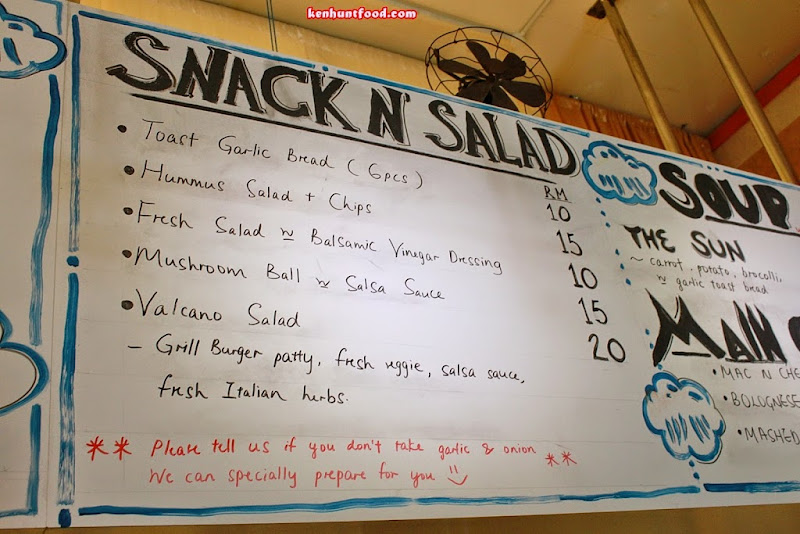 kenhuntfood.com
SNACK N' SALAD
RM
• Toast Garlic Bread (6pcs) 10
• Hummus Salad + Chips 15
• Fresh Salad w Balsamic Vinegar Dressing 10
• Mushroom Ball w Salsa Sauce 15
• Valcano Salad 20
- Grill Burger patty, fresh veggie, salsa sauce,
fresh Italian herbs.
** Please tell us if you don't take garlic & onion **
We can specially prepare for you
SOUP
THE SUN
~ carrot, potato, brocolli,
w garlic toast bread
MAIN
• MAC N CHE
• BOLOGNESE
• MASHED